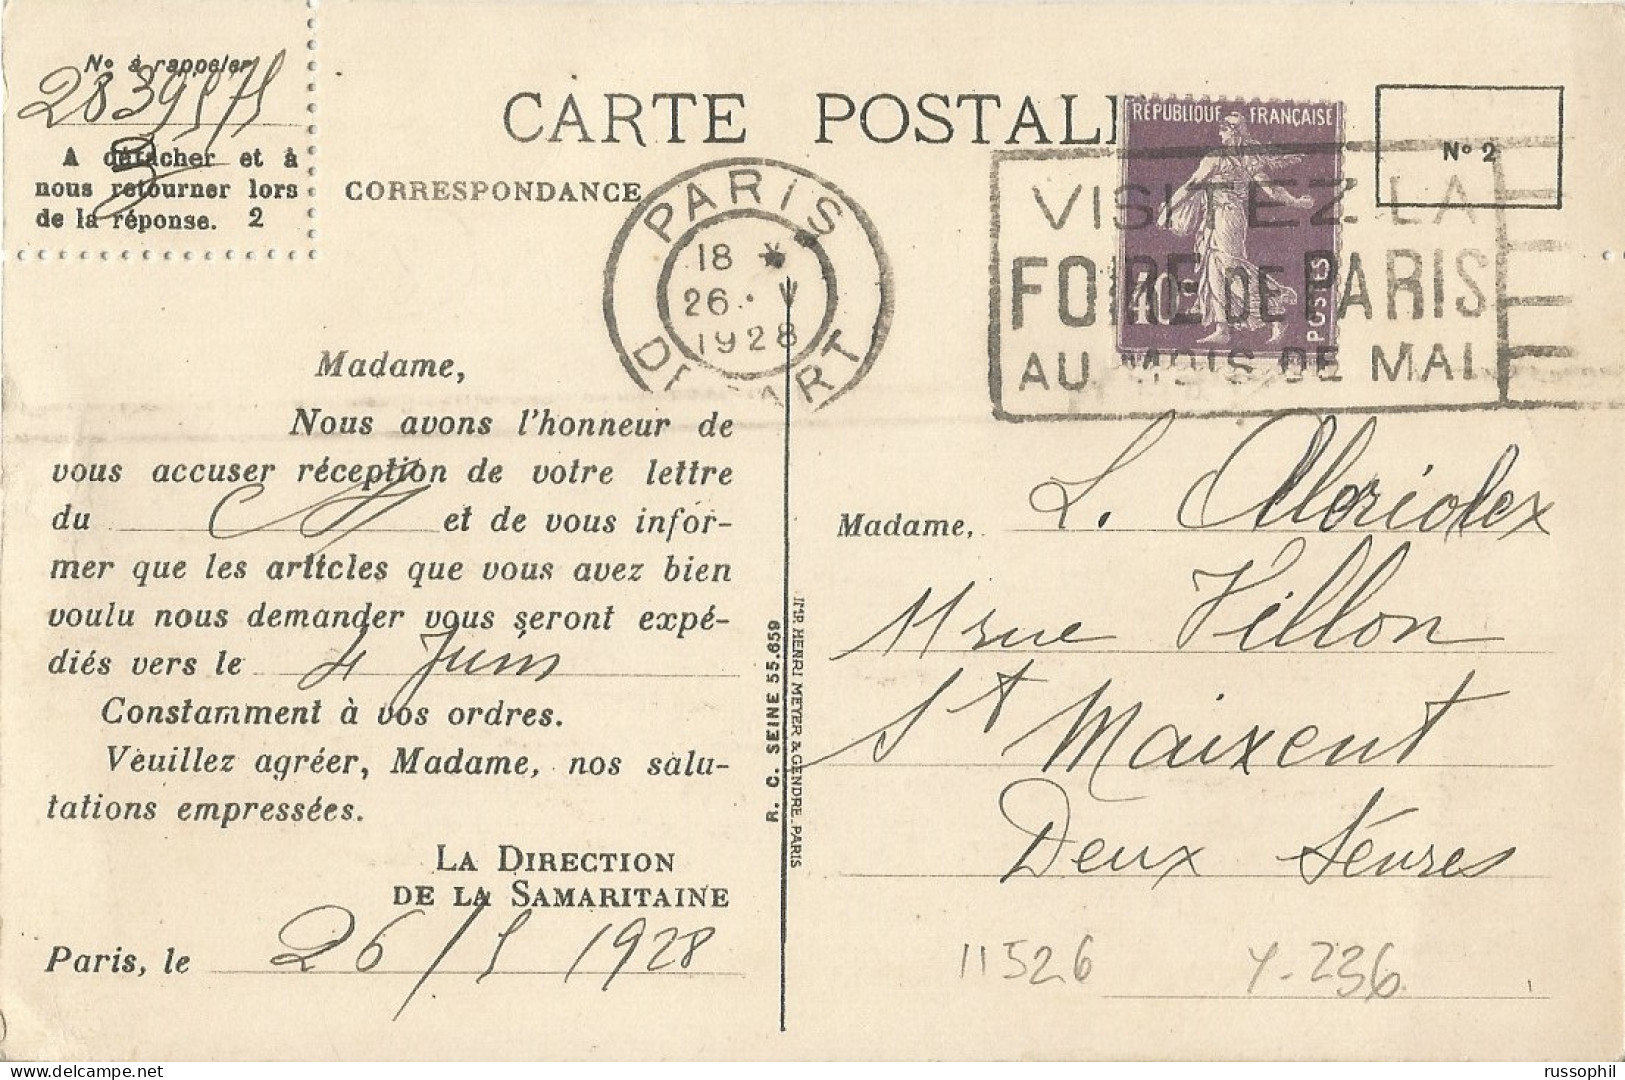 No à rappeler
2839575
A détacher et à
nous retourner lors
de la réponse. 2
CARTE POSTALE
CORRESPONDANCE
PARIS
18
26 V
1928
DEPART
RÉPUBLIQUE FRANÇAISE
40c
POSTES
VISITEZ LA
FOIRE DE PARIS
AU MOIS DE MAI
No 2
Madame,
Nous avons l'honneur de
vous accuser réception de votre lettre
du et de vous infor-
mer que les articles que vous avez bien
voulu nous demander vous seront expé-
diés vers le 4 Juin
Constamment à vos ordres.
Veuillez agréer, Madame, nos salu-
tations empressées.
LA DIRECTION
DE LA SAMARITAINE
Paris, le 26/5 1928
R. C. SEINE 55.659
IMP. HENRI MEYER & GENDRE. PARIS
Madame, L.
11 rue Villon
St Maixent
Deux Sévres
11526 Y-236
russophil